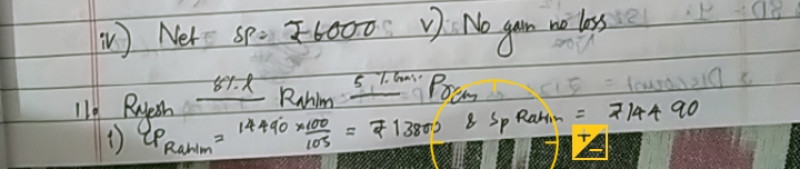 iv) Net SP = ₹6000 v) No gain no loss
11. Rajesh 8% l Rahim 5% Gain Prem
i) CP Rahim = 14490 × 100/105 = ₹13800 & SP Rahim = ₹14490